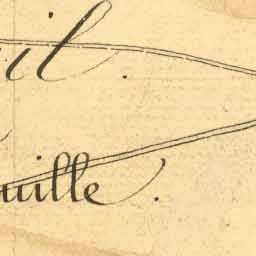 il.
uille.